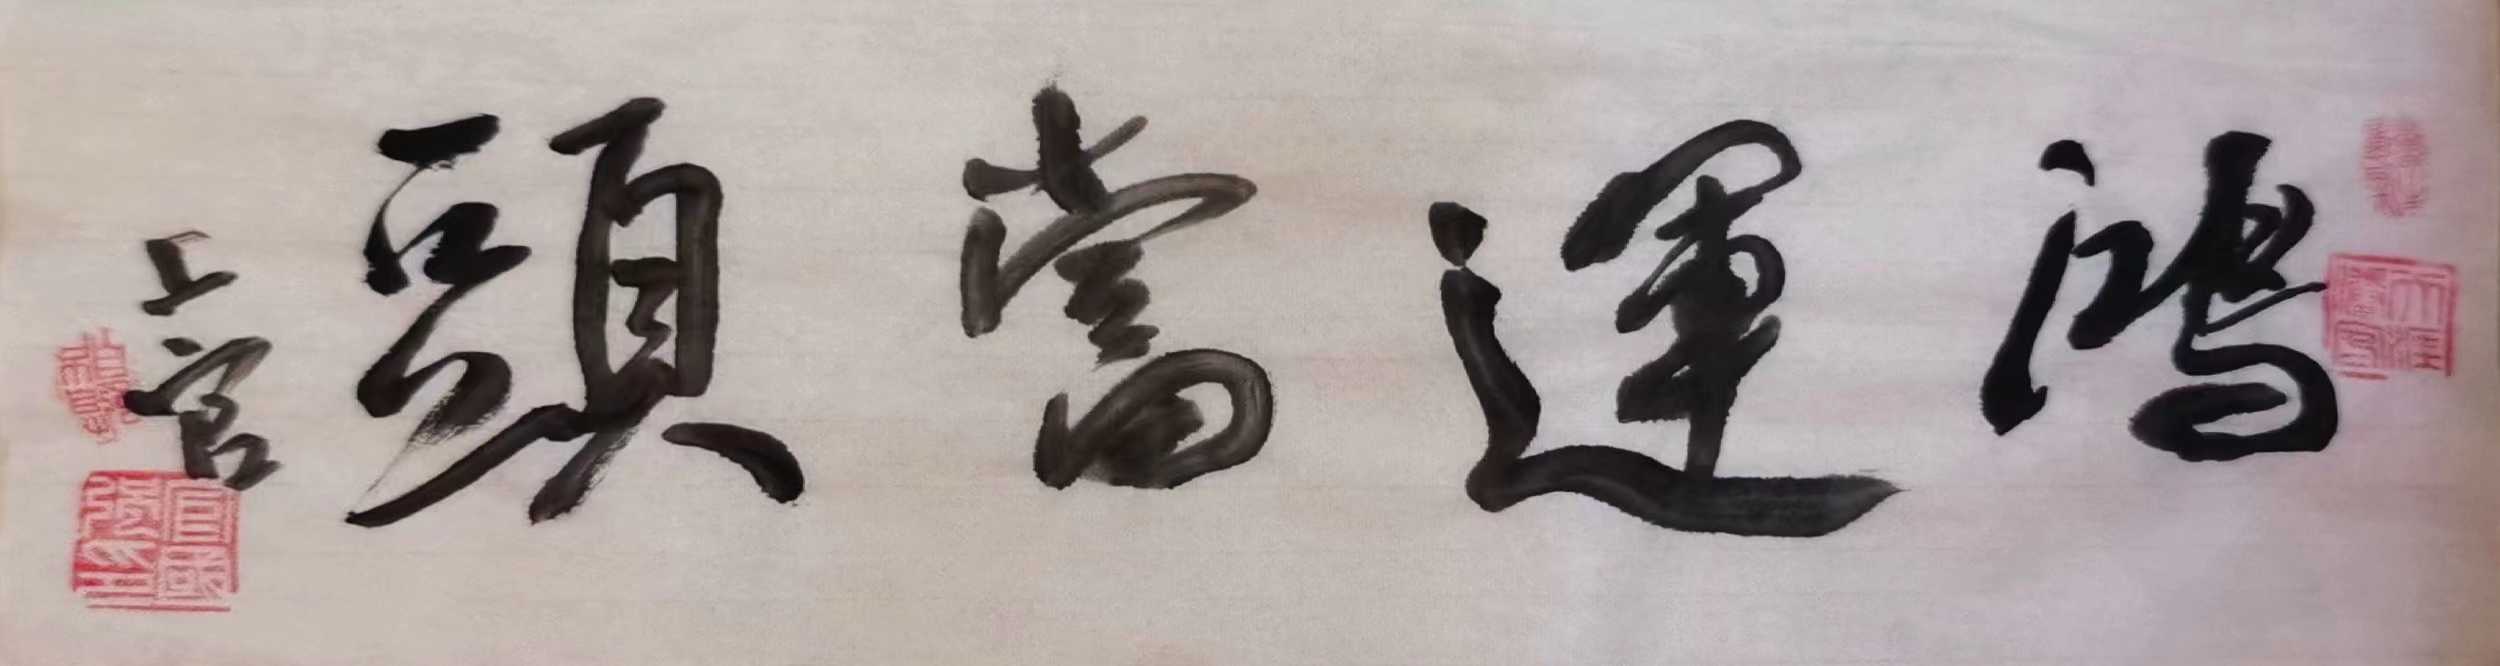 鴻運當頭
上官